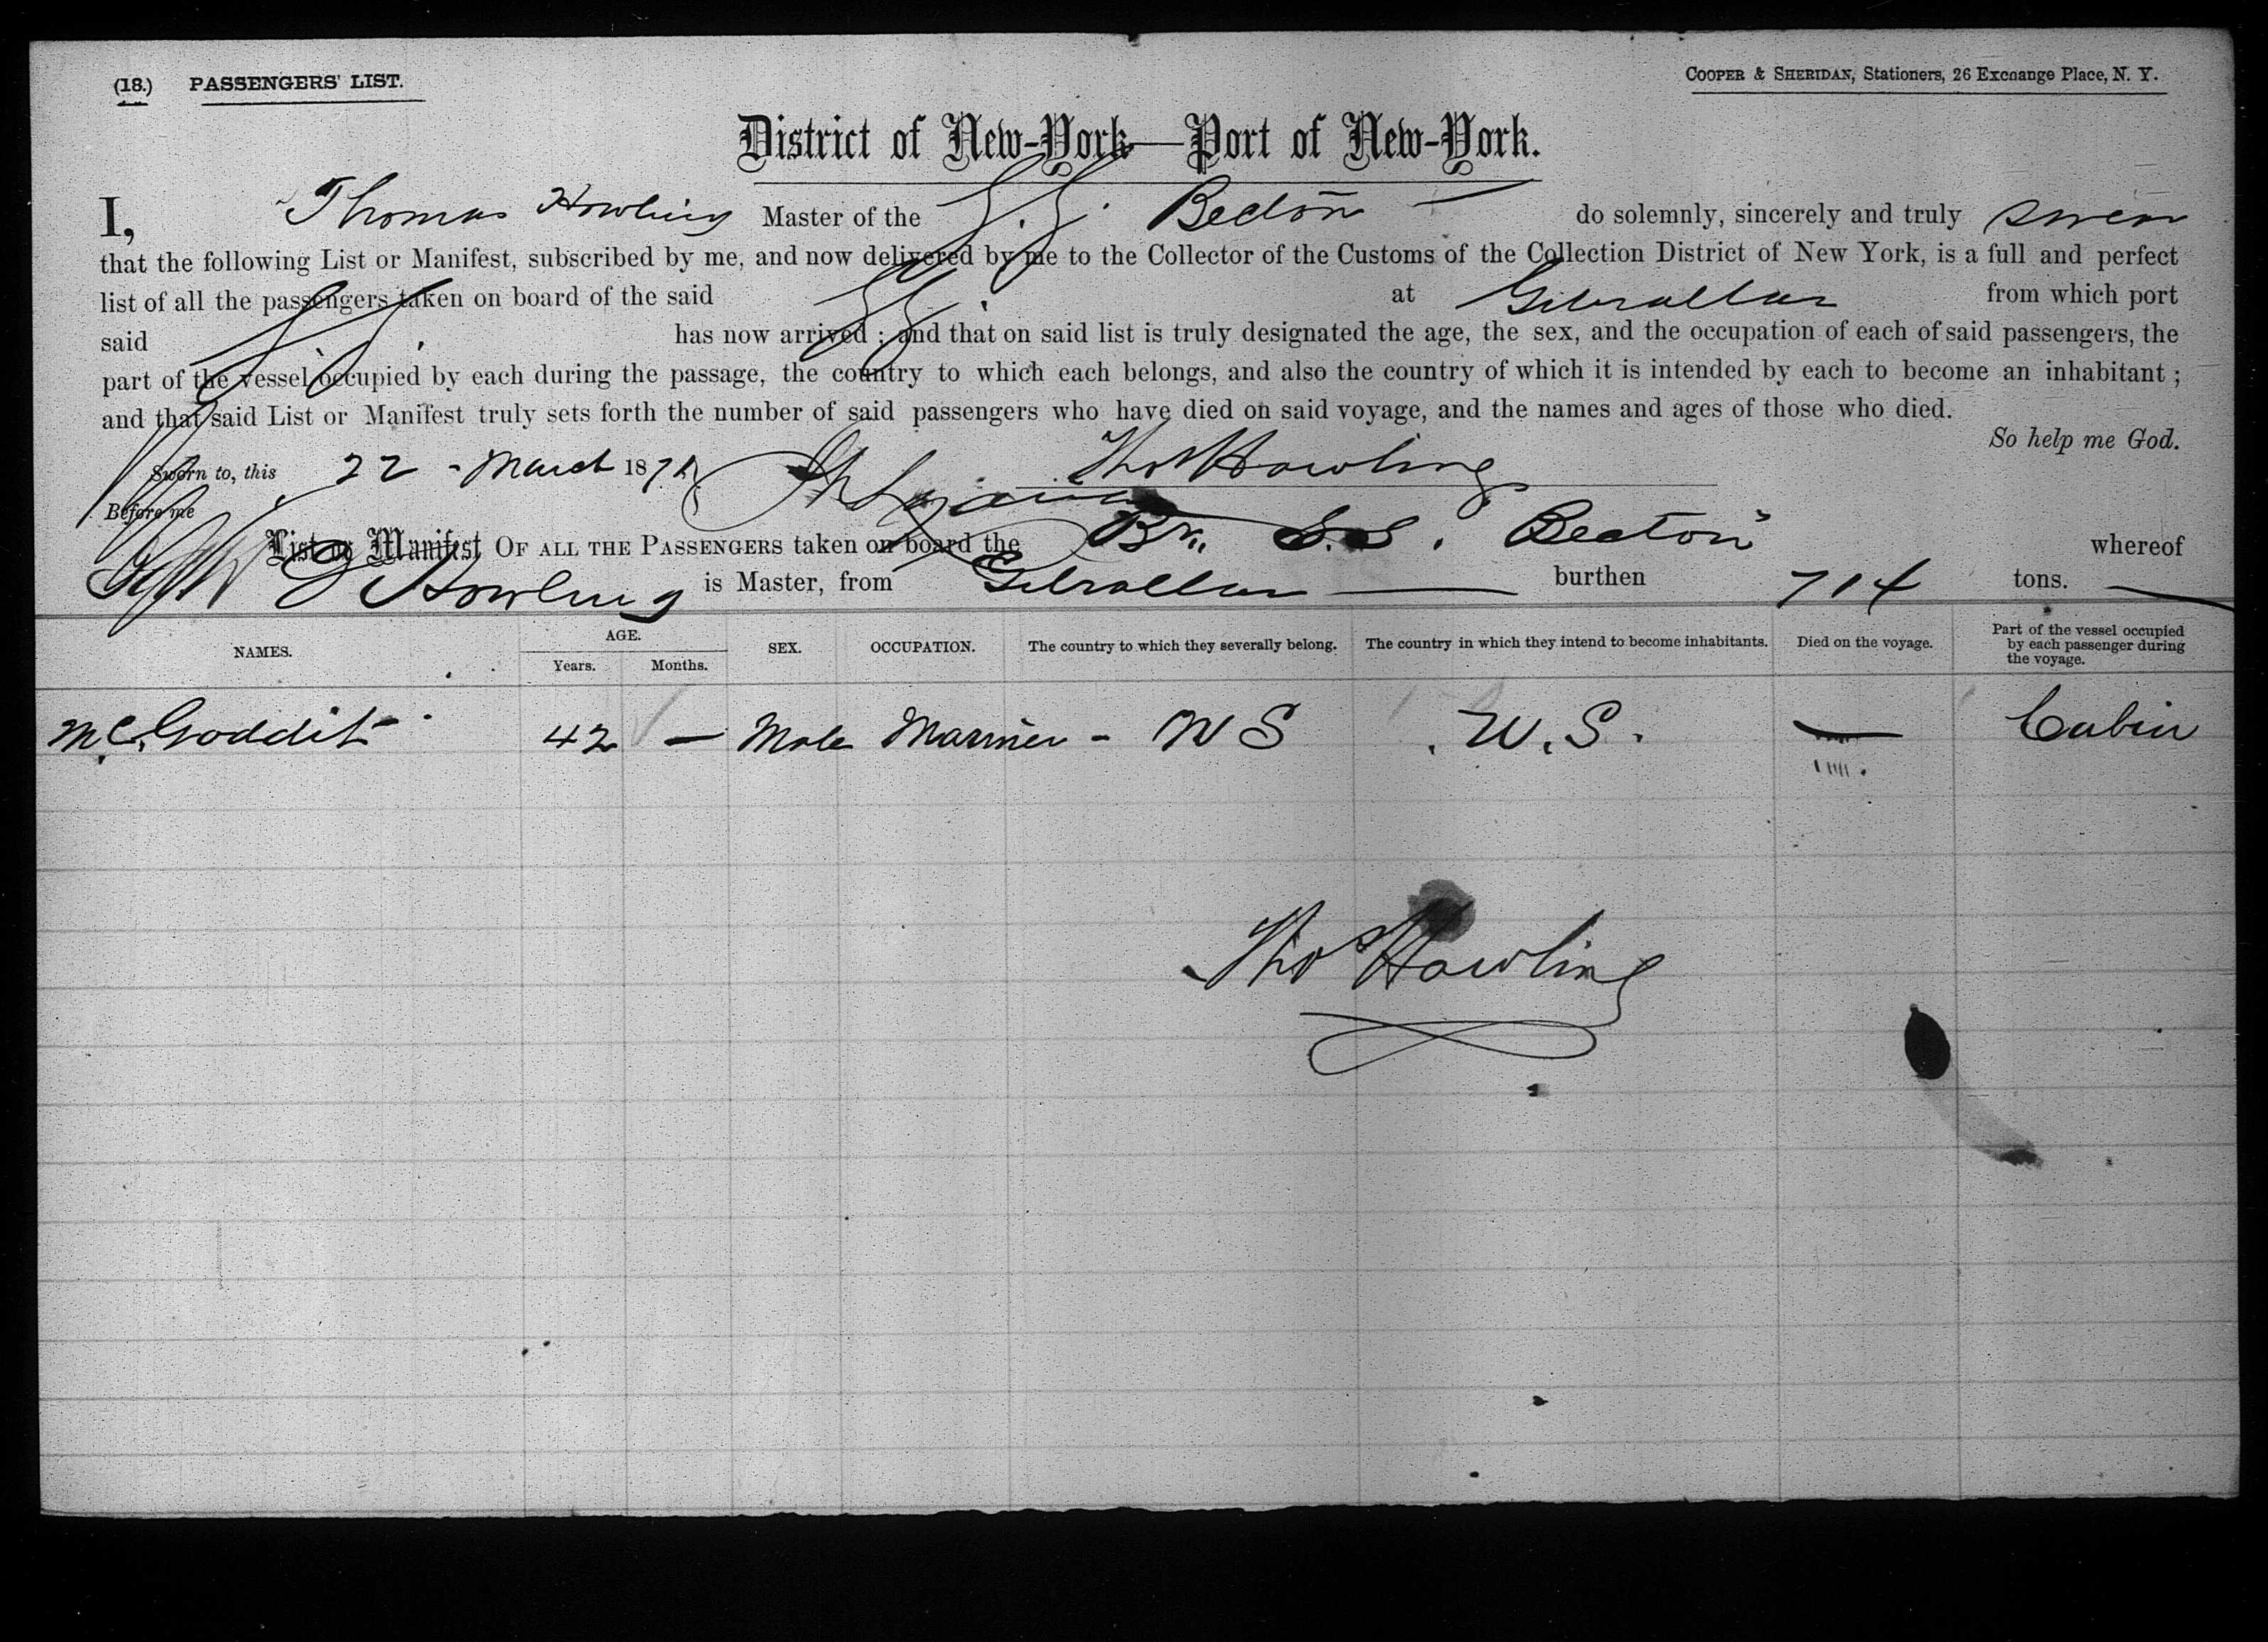 (18.) PASSENGERS' LIST.
COOPER & SHERIDAN, Stationers, 26 Exchange Place, N. Y.
District of New-York—Port of New-York.
I, Thomas Howling Master of the S.S. Becton do solemnly, sincerely and truly swear
that the following List or Manifest, subscribed by me, and now delivered by me to the Collector of the Customs of the Collection District of New York, is a full and perfect
list of all the passengers taken on board of the said S.S. at Gibraltar from which port
said S.S. has now arrived; and that on said list is truly designated the age, the sex, and the occupation of each of said passengers, the
part of the vessel occupied by each during the passage, the country to which each belongs, and also the country of which it is intended by each to become an inhabitant;
and that said List or Manifest truly sets forth the number of said passengers who have died on said voyage, and the names and ages of those who died.
So help me God.
Sworn to, this 22 - March 187 Thos Howling
Before me
List or Manifest OF ALL THE PASSENGERS taken on board the Br. S.S. Becton whereof
Howling is Master, from Gibraltar — burthen 714 tons.
NAMES. AGE. Years. Months. SEX. OCCUPATION. The country to which they severally belong. The country in which they intend to become inhabitants. Died on the voyage. Part of the vessel occupied by each passenger during the voyage.
Mc. Goddit 42 — Male Mariner - U S U.S. — Cabin
Thos Howling